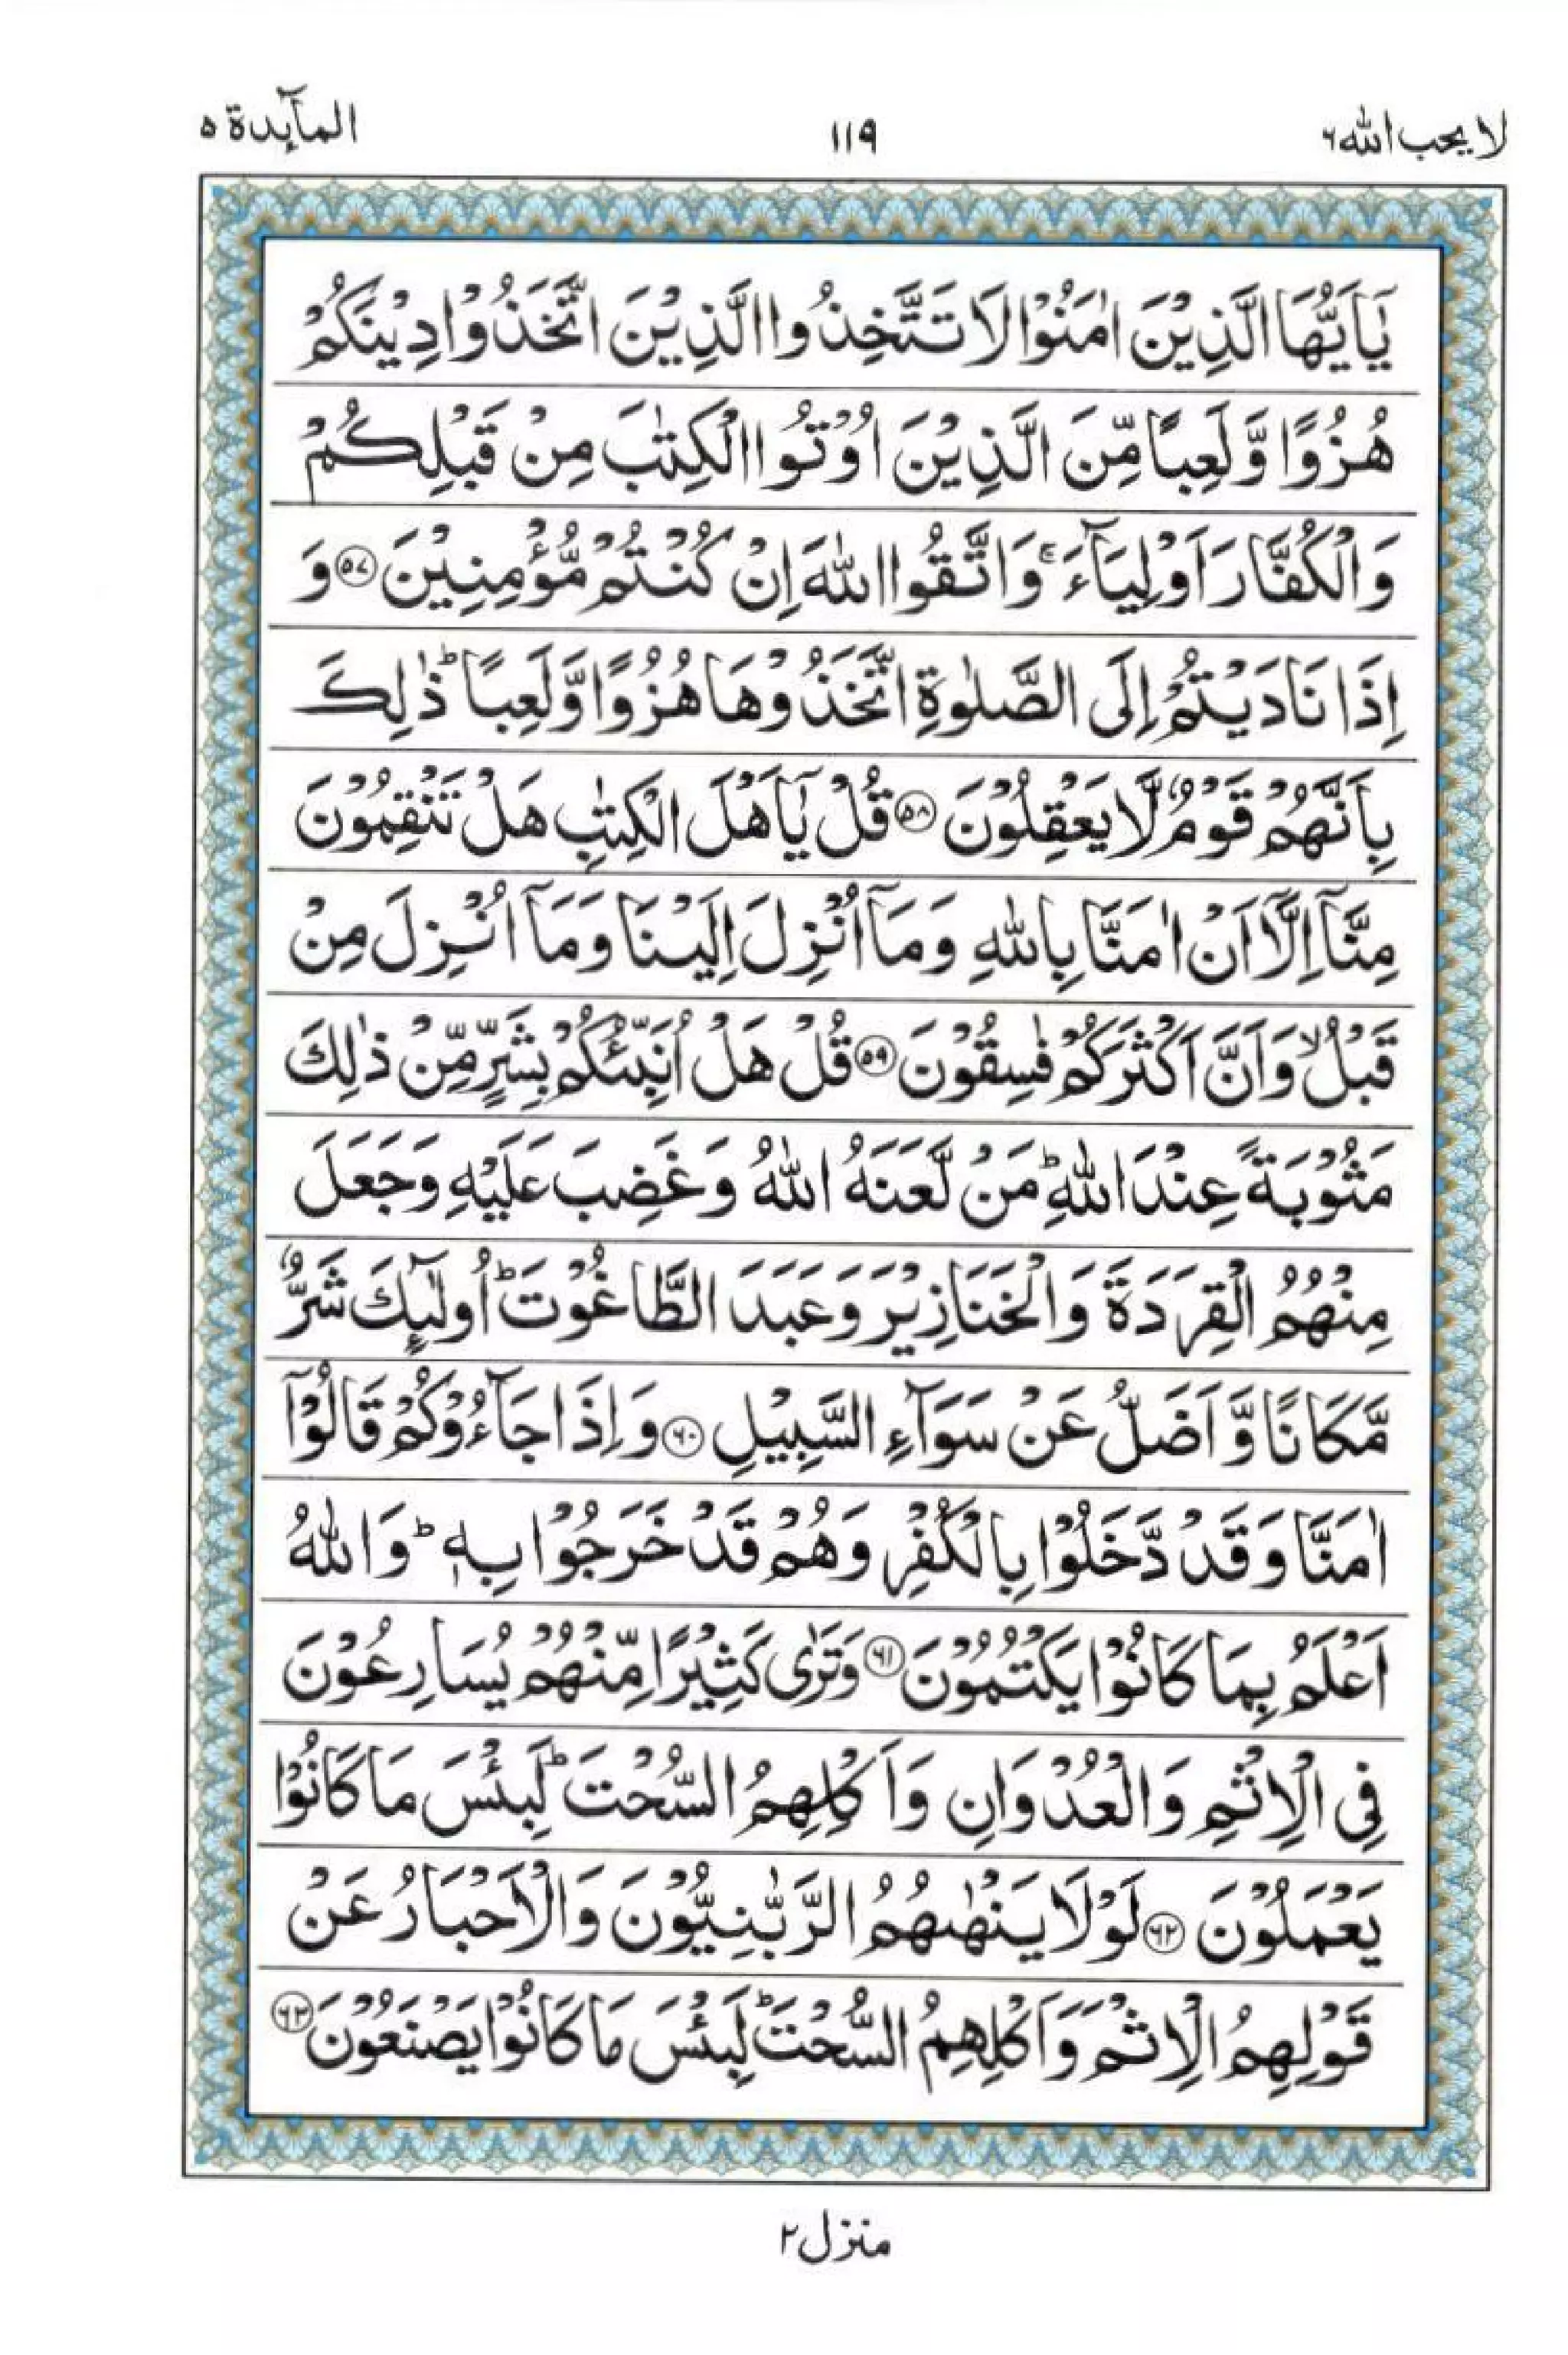 لا يحب الله ٦
١١٩
المآىِٕدة ٥
يٰۤاَيُّهَا الَّذِيْنَ اٰمَنُوْا لَا تَتَّخِذُوا الَّذِيْنَ اتَّخَذُوْا دِيْنَكُمْ
هُزُوًا وَّ لَعِبًا مِّنَ الَّذِيْنَ اُوْتُوا الْكِتٰبَ مِنْ قَبْلِكُمْ
وَالْكُفَّارَ اَوْلِيَآءَ ۚ وَاتَّقُوا اللّٰهَ اِنْ كُنْتُمْ مُّؤْمِنِيْنَ ٥٧ وَ
اِذَا نَادَيْتُمْ اِلَى الصَّلٰوةِ اتَّخَذُوْهَا هُزُوًا وَّلَعِبًا ؕ ذٰلِكَ
بِاَنَّهُمْ قَوْمٌ لَّا يَعْقِلُوْنَ ٥٨ قُلْ يٰۤاَهْلَ الْكِتٰبِ هَلْ تَنْقِمُوْنَ
مِنَّاۤ اِلَّاۤ اَنْ اٰمَنَّا بِاللّٰهِ وَمَاۤ اُنْزِلَ اِلَيْنَا وَمَاۤ اُنْزِلَ مِنْ
قَبْلُ ۙ وَاَنَّ اَكْثَرَكُمْ فٰسِقُوْنَ ٥٩ قُلْ هَلْ اُنَبِّئُكُمْ بِشَرٍّ مِّنْ ذٰلِكَ
مَثُوْبَةً عِنْدَ اللّٰهِ ؕ مَنْ لَّعَنَهُ اللّٰهُ وَغَضِبَ عَلَيْهِ وَجَعَلَ
مِنْهُمُ الْقِرَدَةَ وَالْخَنَازِيْرَ وَعَبَدَ الطَّاغُوْتَ ؕ اُولٰٓىِٕكَ شَرٌّ
مَّكَانًا وَّ اَضَلُّ عَنْ سَوَآءِ السَّبِيْلِ ٦٠ وَاِذَا جَآءُوْكُمْ قَالُوْۤا
اٰمَنَّا وَقَدْ دَّخَلُوْا بِالْكُفْرِ وَهُمْ قَدْ خَرَجُوْا بِهٖ ؕ وَاللّٰهُ
اَعْلَمُ بِمَا كَانُوْا يَكْتُمُوْنَ ٦١ وَتَرٰى كَثِيْرًا مِّنْهُمْ يُسَارِعُوْنَ
فِى الْاِثْمِ وَالْعُدْوَانِ وَاَكْلِهِمُ السُّحْتَ ؕ لَبِئْسَ مَا كَانُوْا
يَعْمَلُوْنَ ٦٢ لَوْلَا يَنْهٰىهُمُ الرَّبّٰنِيُّوْنَ وَالْاَحْبَارُ عَنْ
قَوْلِهِمُ الْاِثْمَ وَاَكْلِهِمُ السُّحْتَ ؕ لَبِئْسَ مَا كَانُوْا يَصْنَعُوْنَ ٦٣
منزل ٢